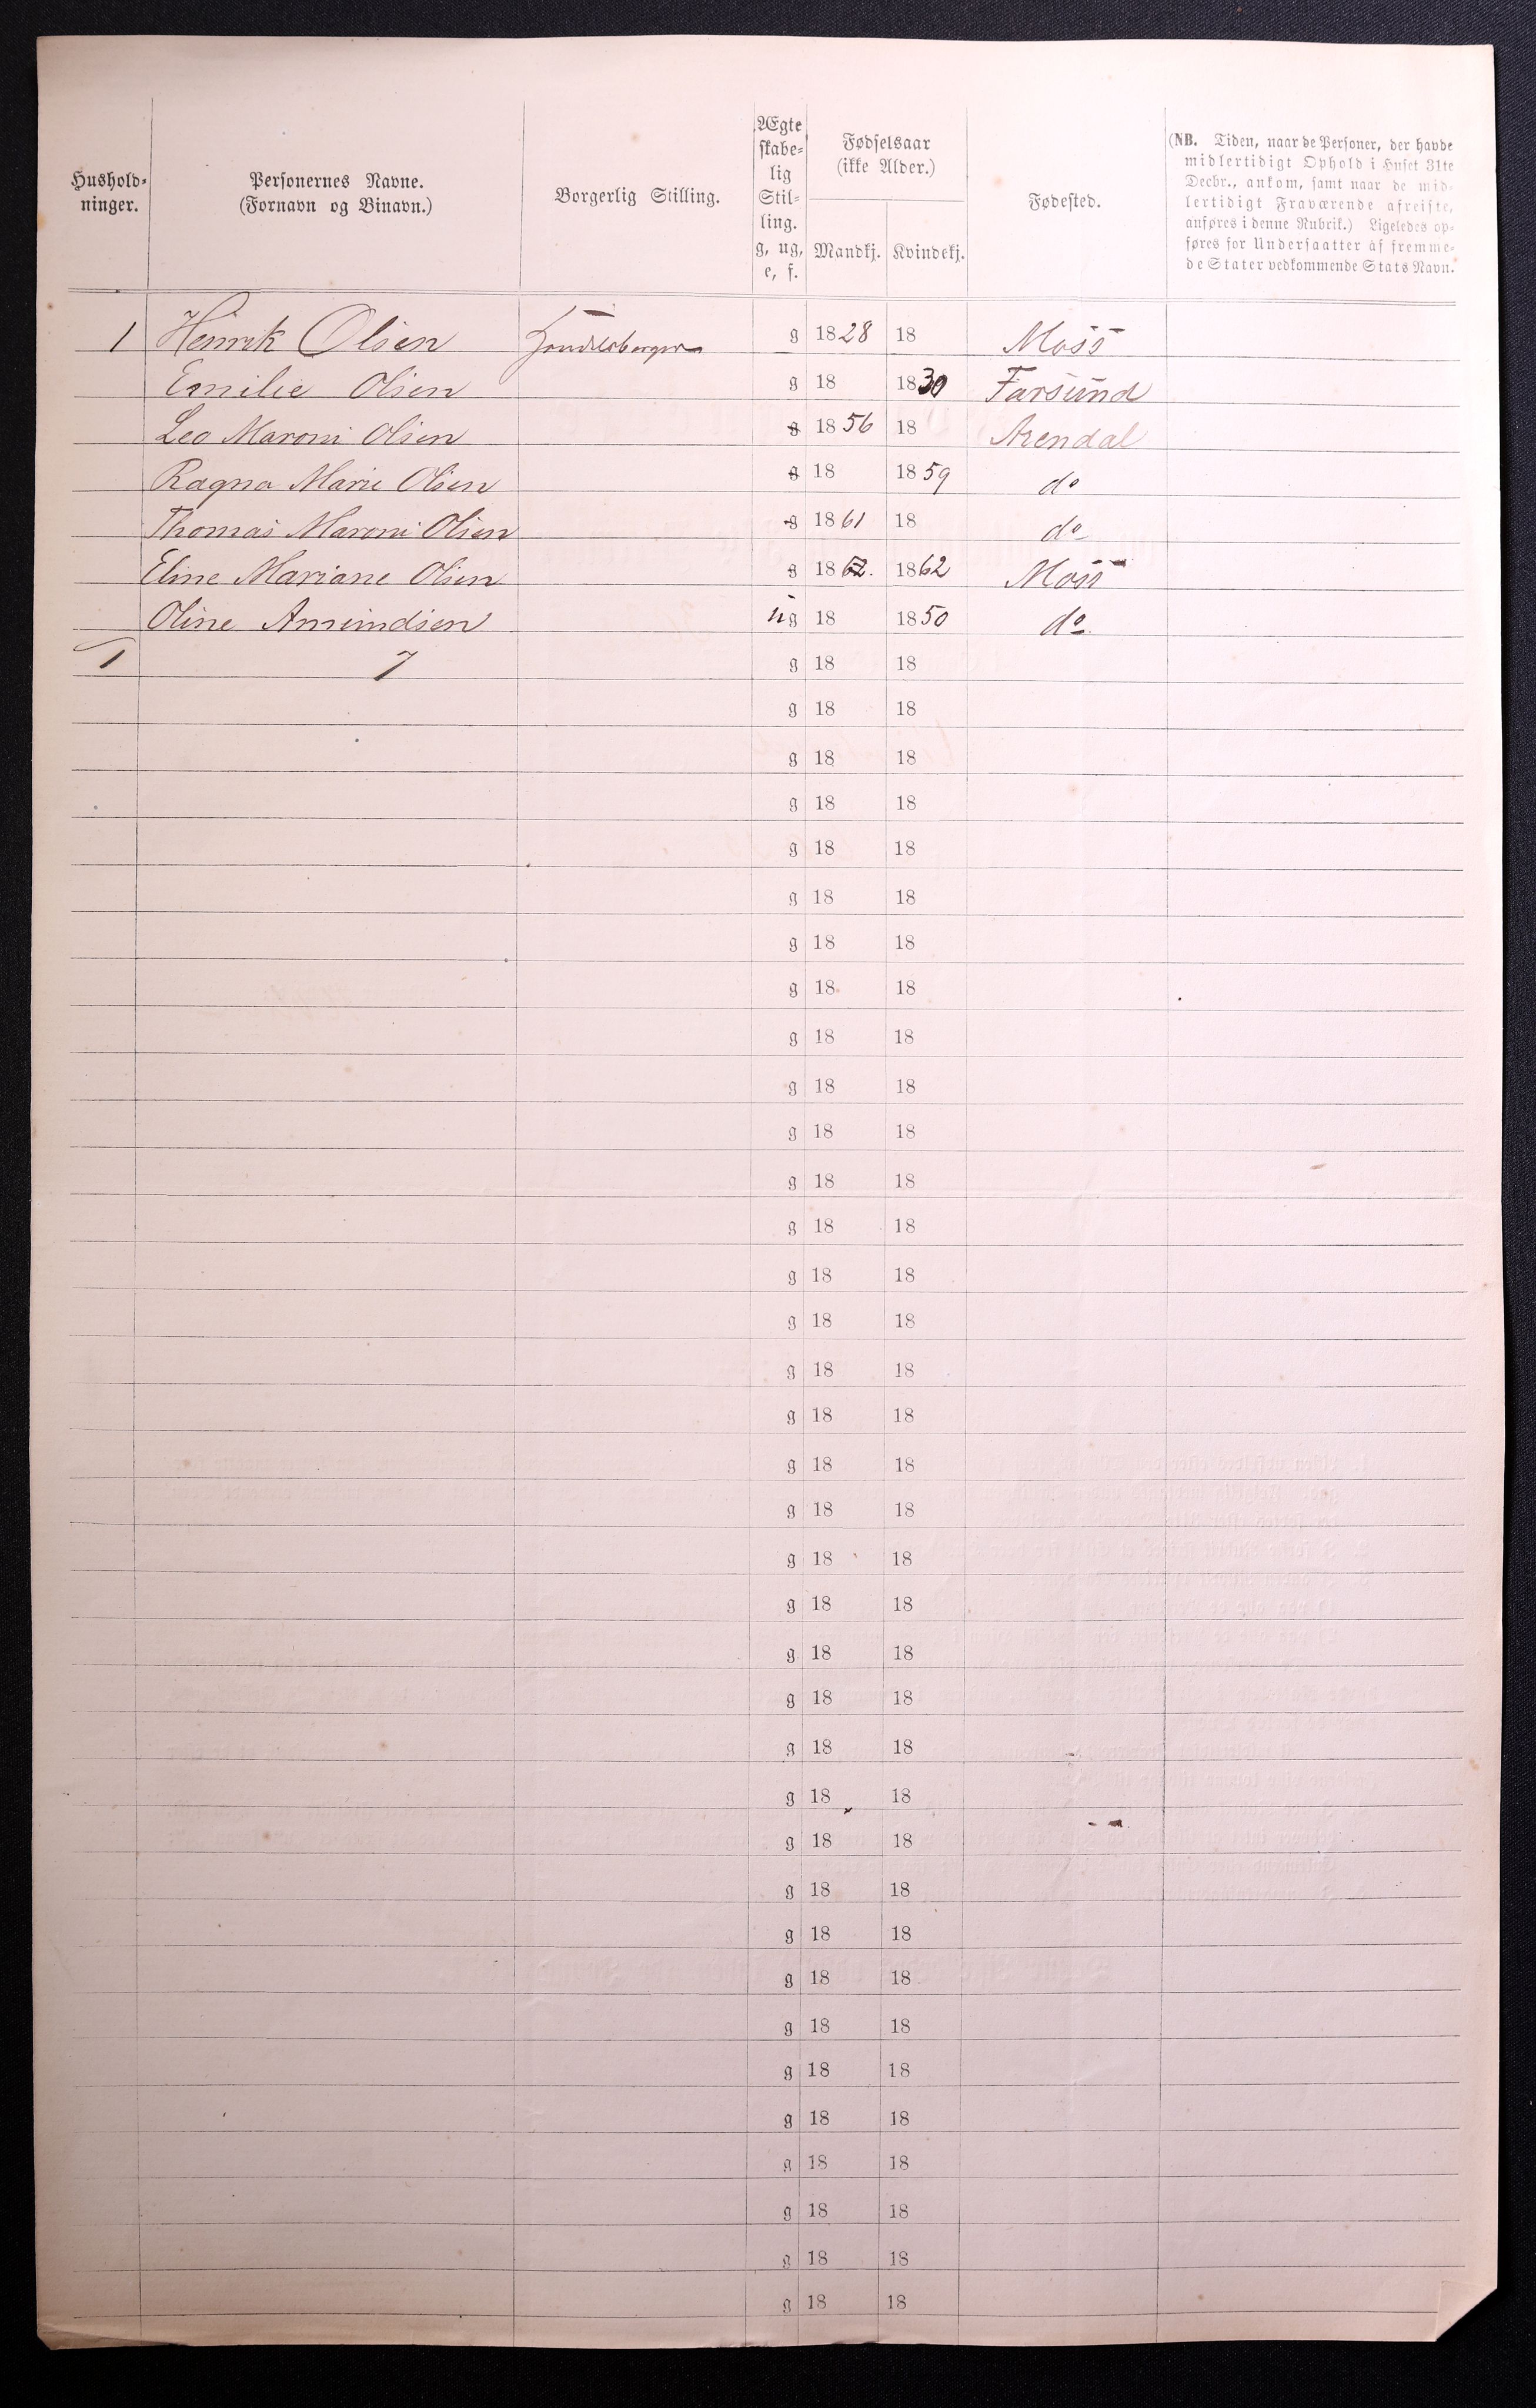 Hushold-
ninger.
Personernes Navne.
(Fornavn og Binavn.)
Borgerlig Stilling.
Ægte
skabe-
lig
Stil-
ling.
g, ug,
e, f.
Fødselsaar
(ikke Alder.)
Mandkj. Kvindekj.
Fødested.
(NB. Tiden, naar de Personer, der havde
midlertidigt Ophold i Huset 31te
Decbr., ankom, samt naar de mid-
lertidigt Fraværende afreiste,
anføres i denne Rubrik.) Ligeledes op-
føres for Undersaatter af fremme-
de Stater vedkommende Stats Navn.
1 Henrik Olsen Handelsborger g 1828 18 Moss
Emilie Olsen g 18 1830 Farsund
Leo Maroni Olsen g 1856 18 Arendal
Ragna Marie Olsen g 18 1859 do
Thomas Maroni Olsen g 1861 18 do
Eline Mariane Olsen g 1862. 1862 Moss
Oline Amundsen ug 18 1850 do
1 7 g 18 18
g 18 18
g 18 18
g 18 18
g 18 18
g 18 18
g 18 18
g 18 18
g 18 18
g 18 18
g 18 18
g 18 18
g 18 18
g 18 18
g 18 18
g 18 18
g 18 18
g 18 18
g 18 18
g 18 18
g 18 18
g 18 18
g 18 18
g 18 18
g 18 18
g 18 18
g 18 18
g 18 18
g 18 18
g 18 18
g 18 18
g 18 18
g 18 18
g 18 18
g 18 18
g 18 18